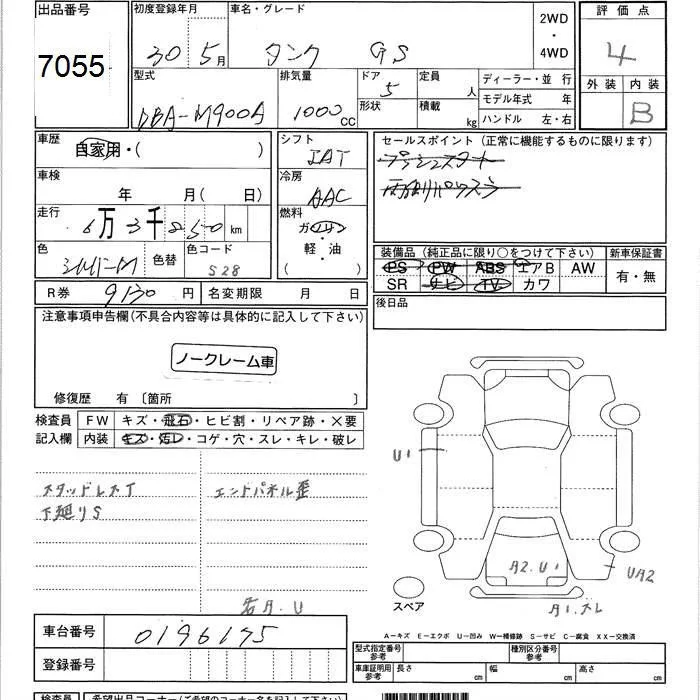 出品番号 初度登録年月 車名・グレード 2WD・4WD 評価点
7055 30年 5月 タンク GS 4
型式 排気量 ドア 定員 人 ディーラー・並行 外装 内装
DBA-M900A 1000cc 5 形状 積載 kg モデル年式 年 B
ハンドル 左・右
車歴 自家用・( ) シフト IAT セールスポイント (正常に機能するものに限ります)
プッシュスタート
車検 年 月( 日) 冷房 AAC 両側パワスラ
走行 6万3千850km 燃料 ガソリン・軽・油 ( )
色 シルバーM 色替 色コード S28
装備品 (純正品に限り○をつけて下さい) 新車保証書
PS PW ABS エアB AW 有・無
SR ナビ TV カワ
R券 9130円 名変期限 月 日 後日品
注意事項申告欄(不具合内容等は具体的に記入して下さい)
ノークレーム車
修復歴 有 〔箇所 〕
検査員 FW キズ・飛石・ヒビ割・リペア跡・×要
記入欄 内装 キズ・汚レ・コゲ・穴・スレ・キレ・破レ
U1
スタッドレスT エンドパネル歪
下廻りS
A2.U1 UA2
右A.U スペア A1.スレ
A-キズ E-エクボ U-凹み W-補修跡 S-サビ C-腐食 XX-交換済
車台番号 0196175 型式指定番号 参考 種別区分番号 参考
登録番号 車庫証明用 参考 長さ cm 幅 cm 高さ cm
検査員 希望出品コーナー(ご希望のコーナー名を記入して下さい)